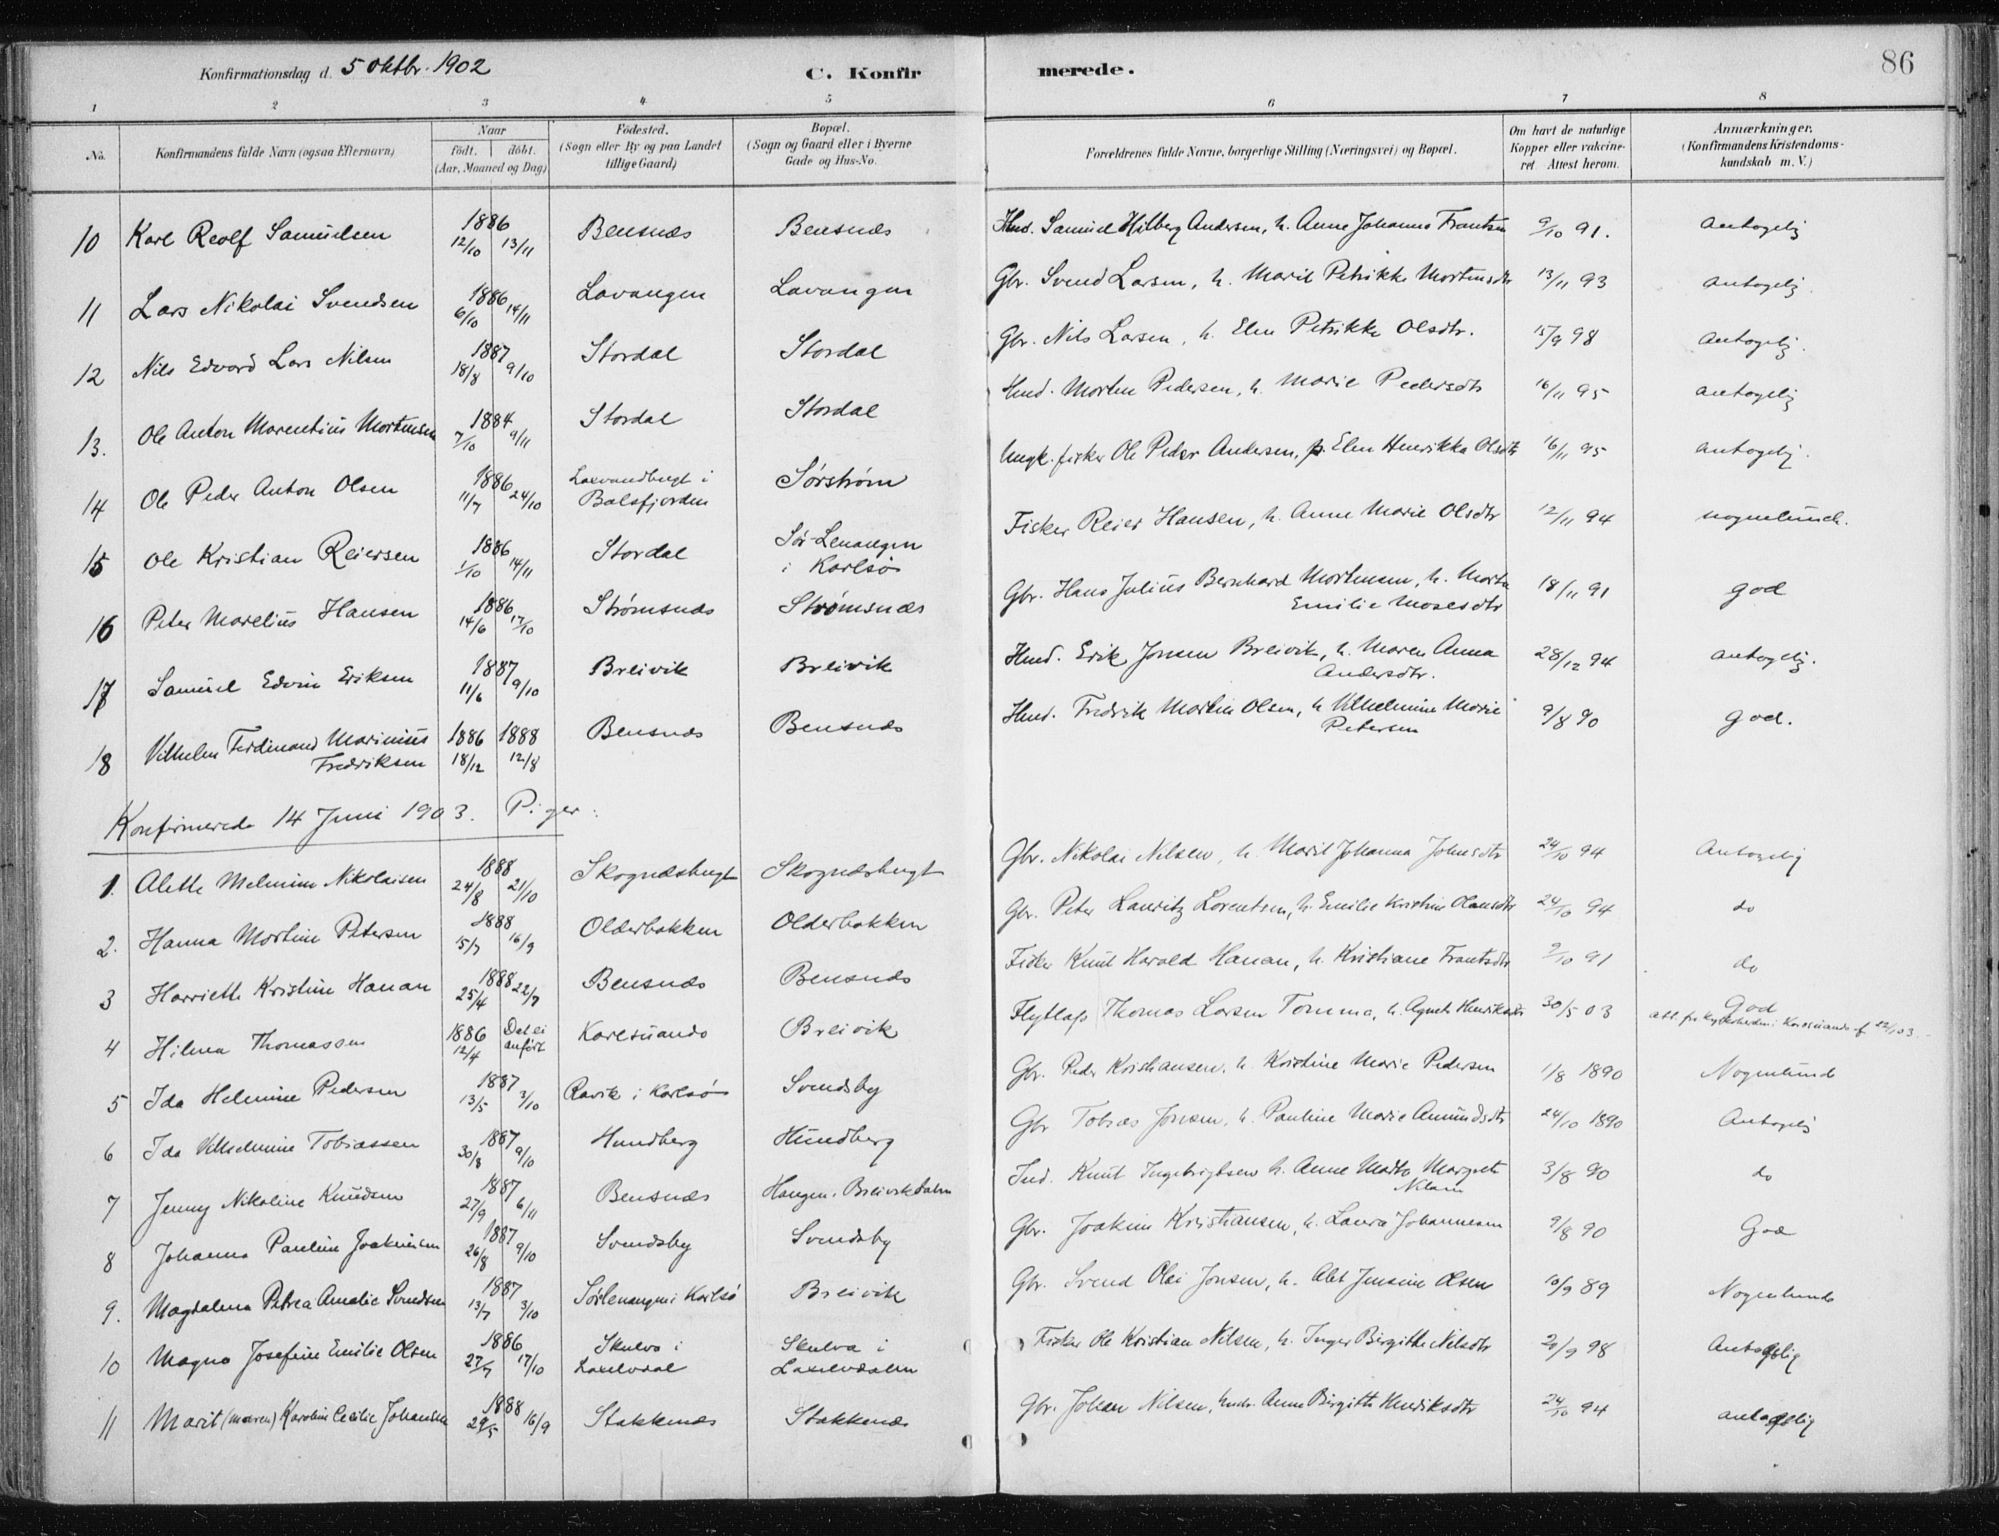 86
Konfirmationsdag d. 5 oktbr. 1902 C. Konfirmerede.
1 2 3 4 5 6 7 8
No. Konfirmandens fulde Navn (ogsaa Efternavn) Naar født. døbt. (Aar, Maaned og Dag) Fødested. (Sogn eller By og paa Landet tillige Gaard) Bopæl. (Sogn og Gaard eller i Byerne Gade og Hus-No. Forældrenes fulde Navne, borgerlige Stilling (Næringsvei) og Bopæl. Om havt de naturlige Kopper eller vakcineret Attest herom. Anmærkninger. (Konfirmandens Kristendomskundskab m. V.)
10 Karl Reolf Samuelsen 1886 12/10 13/11 Bensnæs Bensnæs Hmd. Samuel Hilberg Andersen, h. Anne Johanna Frantsen 9/10 91. antagelig
11 Lars Nikolai Svendsen 1886 6/10 14/11 Lavangen Lavangen Gbr. Svend Larsen, h. Marit Petrikke Mortensdtr 13/11 93 antagelig.
12 Nils Edvard Lars Nilsen 1887 18/8 9/10 Stordal Stordal Gbr. Nils Larsen, h. Elen Petrikke Olsdtr. 15/9 98 antagelig.
13. Ole Anton Marentius Mortensen 1884 7/10 9/11 Stordal Stordal Hmd. Morten Pedersen, h. Marie Pedersdtr 16/11 95 antagelig
14 Ole Peder Anton Olsen 1886 11/7 24/10 Laxvandbugt i Balsfjorden Sørstrøm Ungk. fisker Ole Peder Andersen, p. Elen Henrikka Olsdtr 16/11 95 antagelig.
15 Ole Kristian Reiersen 1886 1/10 14/11 Stordal Sør-Lenangen i Karlsø Fisker Reier Hansen, h. Anne Marie Olsdtr 12/11 94 nogenlunde.
16 Peter Marelius Hansen 1886 14/6 17/10 Strømsnæs Strømsnæs Gbr. Hans Julius Bernhard Mortensen, h. Marta Emilie Mosesdtr 18/11 91 god
17 Samuel Edvin Eriksen 1887 11/6 9/10 Breivik Breivik Hmd. Erik Jonsen Breivik, h. Maren Anna Andersdtr. 28/12 94 antagelig.
18 Vilhelm Ferdinand Marinius Fredriksen 1886 18/12 1888 12/8 Bensnæs Bensnæs Hmd. Fredrik Martin Olsen, h Vilhelmine Marie Petersen 9/8 90 god.
Konfirmerede 14 Juni 1903. Piger:
1. Alette Melmine Nikolaisen 1888 24/8 21/10 Skognæsbugt Skognæsbugt Gbr. Nikolai Nilsen, h. Marit Johanna Johnsdtr 24/10 94 Antagelig
2. Hanna Martine Petersen 1888 15/7 16/9 Olderbakken Olderbakken Gbr. Peter Lauritz Lorentsen, h. Emilie Kristine Olausdtr 24/10 94 do
3 Harriette Kristine Hanan 1888 25/4 22/7 Bensnæs Bensnæs Fisker Knut Harald Hanan, h. Kristiane Frantsdtr 9/10 91 do
4 Hilma Thomassen 1886 12/4 Det ei anført Karesuando Breivik Flytlap Thomas Larsen Tomma, h. Agnete Henriksdtr 30/5 03 God att. fra Kyrkoherden i Karesuando af 22/1 03.
5 Ida Helmine Pedersen 1887 13/5 3/10 Ravik i Karlsø Svendsby Gbr. Peder Kristiansen, h. Kristine Marie Pedersen 1/8 1890 Nogenlunde
6 Ida Vilhelmine Tobiassen 1887 30/8 9/10 Hundberg Hundberg Gbr Tobias Jonsen, h. Pauline Marie Amundsdtr 24/10 1890 Antagelig
7 Jenny Nikoline Knudsen 1887 27/9 6/11 Bensnæs Haugen, Breivikdalen Ind. Knut Ingebrigtsen h. Anne Marta Margrete Nilsen 3/8 90 do
8 Johanna Pauline Joakimsen 1887 26/8 9/10 Svendsby Svendsby Gbr. Joakim Kristiansen, h. Laura Johannesen 9/8 90 God
9. Magdalena Petrea Amalie Svendsen 1887 13/7 3/10 Sørlenangen i Karlsø Breivik Gbr. Svend Olai Jonsen, h. Alet Jensine Olsen 10/9 89 Nogenlunde
10 Magna Josefine Emilie Olsen 1886 27/7 17/10 Skulva i Laxelvdal Skulva i Laxelvdalen Fisker Ole Kristian Nilsen, h. Inger Birgitte Nilsdtr 21/9 98 Antagelig
11 Marit (Maren) Karoline Cecilie Johansen 1888 29/5 16/9 Stakkenæs Stakkenæs Gbr. Johan Nilsen, Hustr. Anne Birgitte Henriksdtr 24/10 94 antagelig